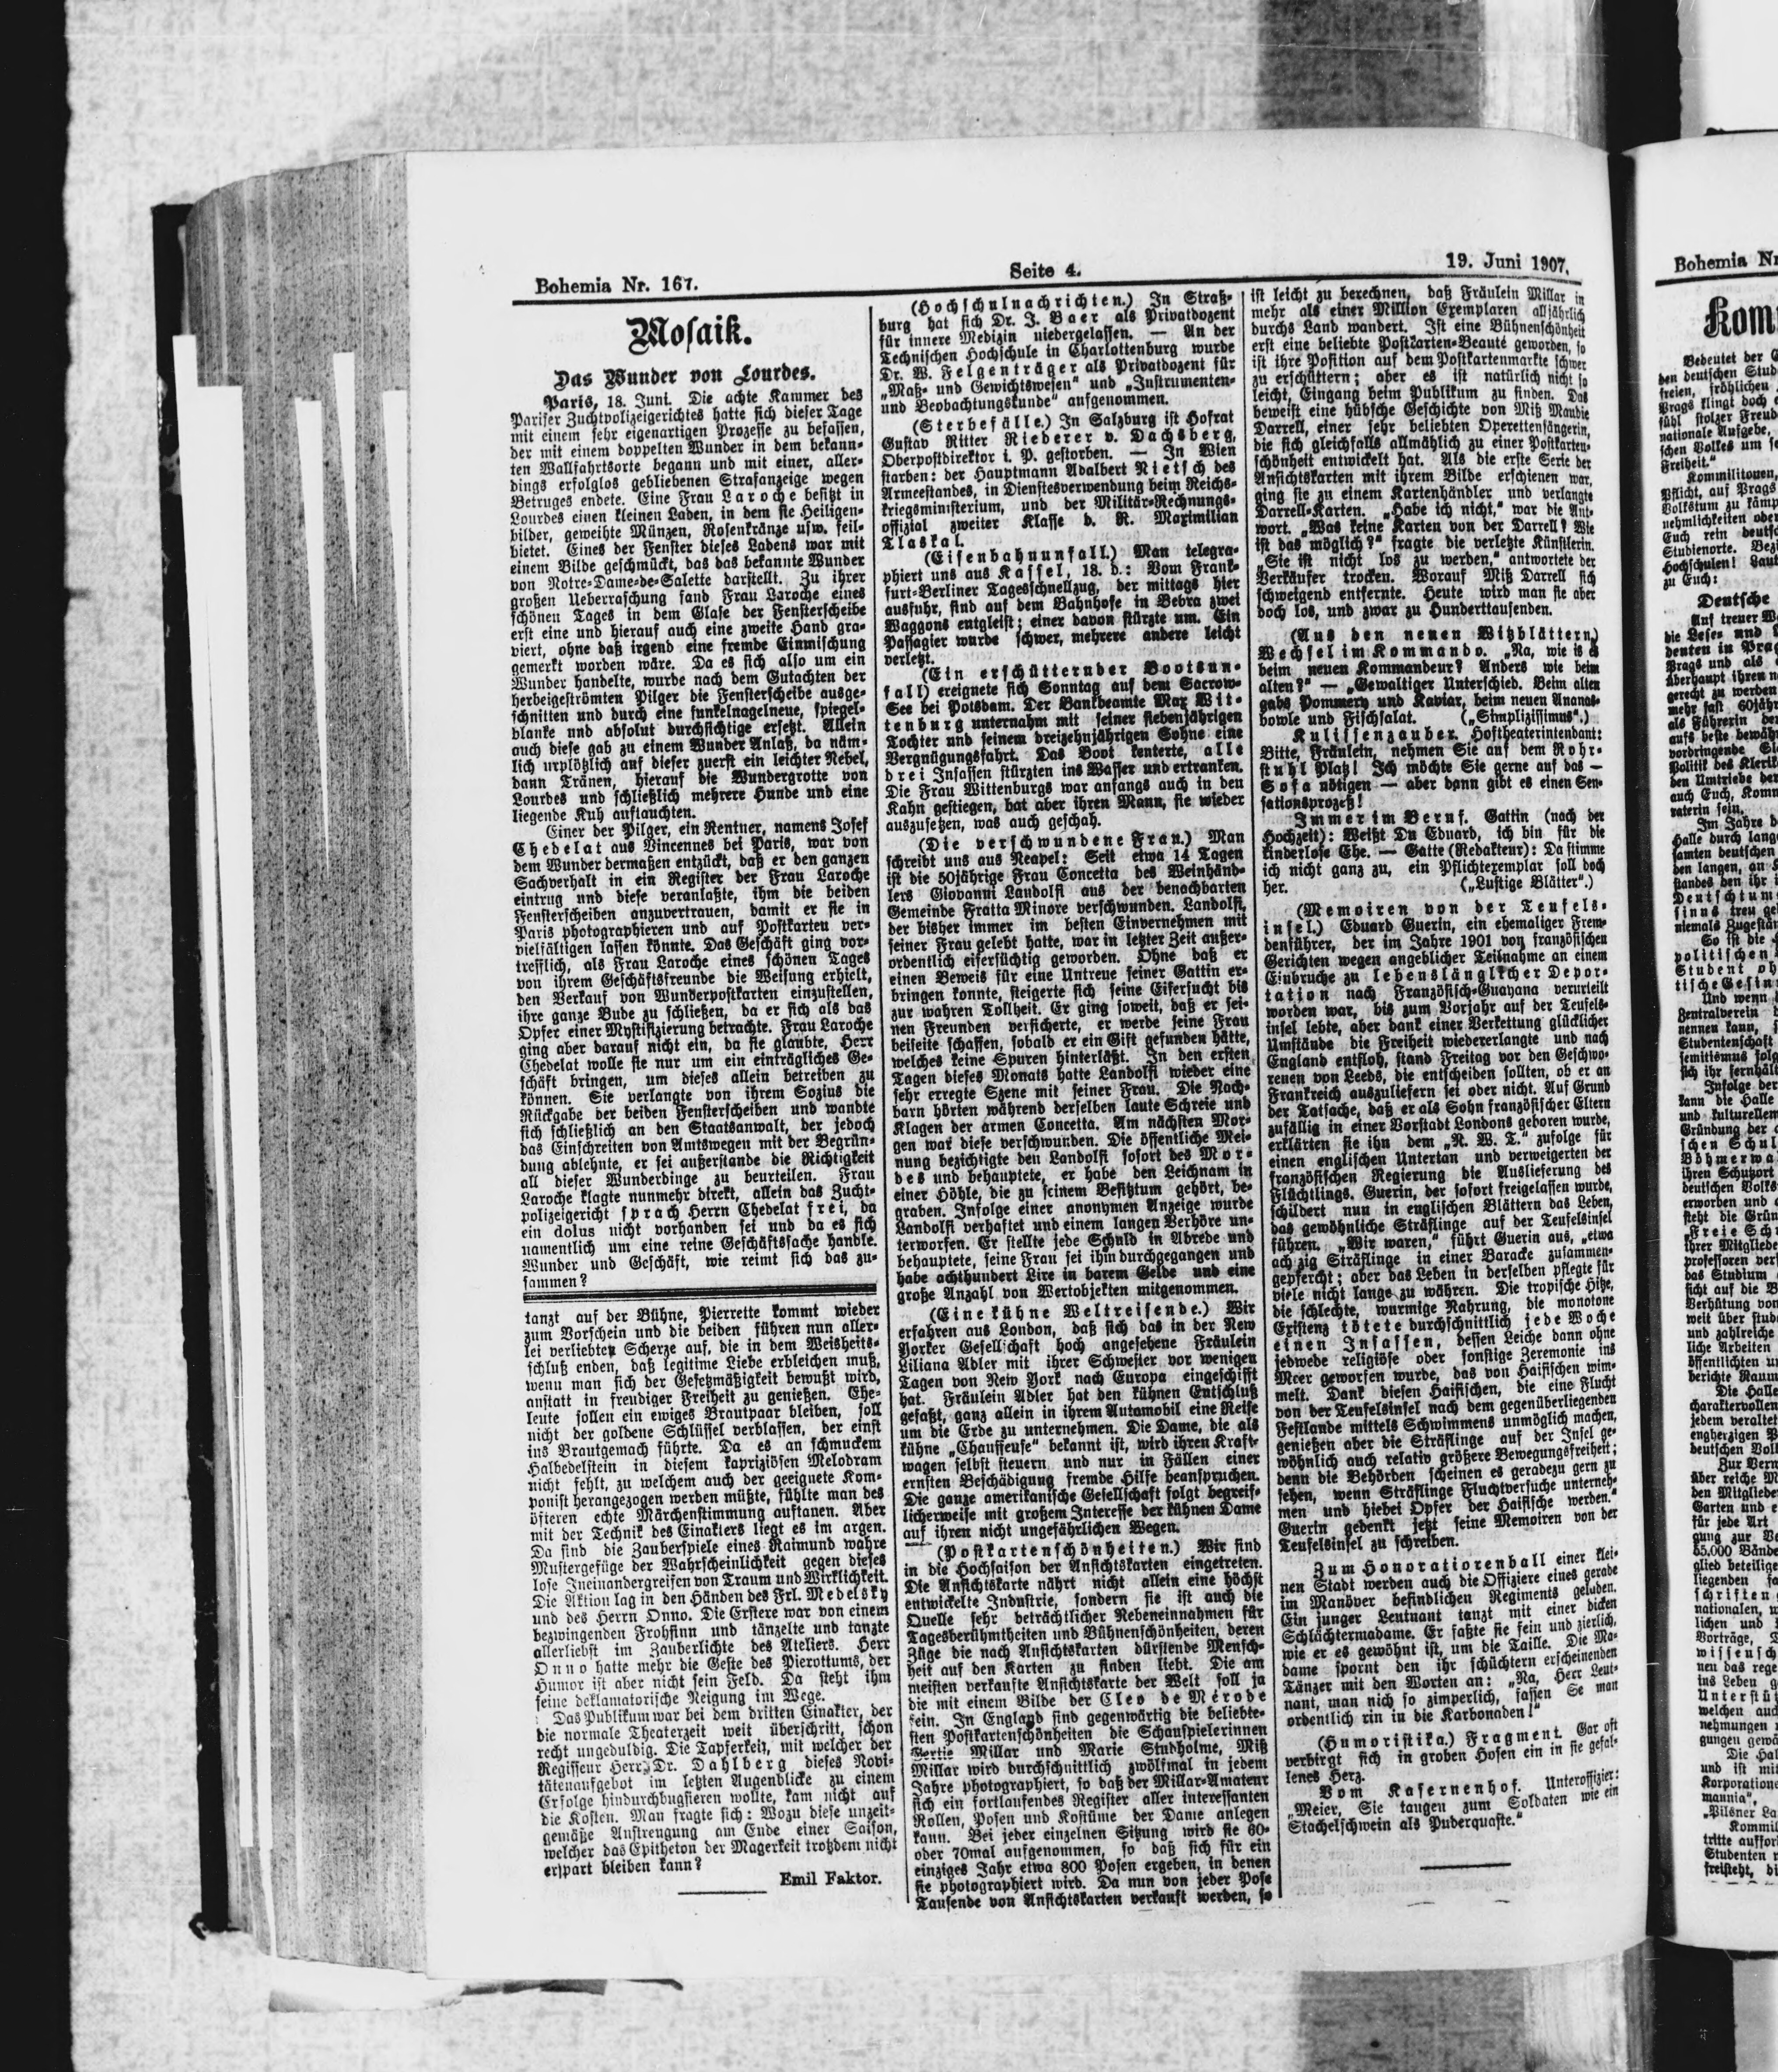 Bohemia Nr. 167.
Seite 4.
19. Juni 1907.
Mosaik.
Das Wunder von Lourdes.
Paris, 18. Juni. Die achte Kammer des
Pariser Zuchtpolizeigerichtes hatte sich dieser Tage
mit einem sehr eigenartigen Prozesse zu befassen,
der mit einem doppelten Wunder in dem bekann-
ten Wallfahrtsorte begann und mit einer, aller-
dings erfolglos gebliebenen Strafanzeige wegen
Betruges endete. Eine Frau Laroche besitzt in
Lourdes einen kleinen Laden, in dem sie Heiligen-
bilder, geweihte Münzen, Rosenkränze usw. feil-
bietet. Eines der Fenster dieses Ladens war mit
einem Bilde geschmückt, das das bekannte Wunder
von Notre-Dame-de-Salette darstellt. Zu ihrer
großen Ueberraschung fand Frau Laroche eines
schönen Tages in dem Glase der Fensterscheibe
erst eine und hierauf auch eine zweite Hand gra-
viert, ohne daß irgend eine fremde Einmischung
gemerkt worden wäre. Da es sich also um ein
Wunder handelte, wurde nach dem Gutachten der
herbeigeströmten Pilger die Fensterscheibe ausge-
schnitten und durch eine funkelnagelneue, spiegel-
blanke und absolut durchsichtige ersetzt. Allein
auch diese gab zu einem Wunder Anlaß, da näm-
lich urplötzlich auf dieser zuerst ein leichter Nebel,
dann Tränen, hierauf die Wundergrotte von
Lourdes und schließlich mehrere Hunde und eine
liegende Kuh auftauchten.
Einer der Pilger, ein Rentner, namens Josef
Chedelat aus Vincennes bei Paris, war von
dem Wunder dermaßen entzückt, daß er den ganzen
Sachverhalt in ein Register der Frau Laroche
eintrug und diese veranlaßte, ihm die beiden
Fensterscheiben anzuvertrauen, damit er sie in
Paris photographieren und auf Postkarten ver-
vielfältigen lassen könnte. Das Geschäft ging vor-
trefflich, als Frau Laroche eines schönen Tages
von ihrem Geschäftsfreunde die Weisung erhielt,
den Verkauf von Wunderpostkarten einzustellen,
ihre ganze Bude zu schließen, da er sich als das
Opfer einer Mystifizierung betrachte. Frau Laroche
ging aber darauf nicht ein, da sie glaubte, Herr
Chedelat wolle sie nur um ein einträgliches Ge-
schäft bringen, um dieses allein betreiben zu
können. Sie verlangte von ihrem Sozius die
Rückgabe der beiden Fensterscheiben und wandte
sich schließlich an den Staatsanwalt, der jedoch
das Einschreiten von Amtswegen mit der Begrün-
dung ablehnte, er sei außerstande die Richtigkeit
all dieser Wunderdinge zu beurteilen. Frau
Laroche klagte nunmehr direkt, allein das Zucht-
polizeigericht sprach Herrn Chedelat frei, da
ein dolus nicht vorhanden sei und da es sich
namentlich um eine reine Geschäftssache handle.
Wunder und Geschäft, wie reimt sich das zu-
sammen?
tanzt auf der Bühne, Pierrette kommt wieder
zum Vorschein und die beiden führen nun aller-
lei verliebten Scherze auf, die in dem Weisheits-
schluß enden, daß legitime Liebe erbleichen muß,
wenn man sich der Gesetzmäßigkeit bewußt wird,
anstatt in freudiger Freiheit zu genießen. Ehe-
leute sollen ein ewiges Brautpaar bleiben, soll
nicht der goldene Schlüssel verblassen, der einst
ins Brautgemach führte. Da es an schmuckem
Halbedelstein in diesem kapriziösen Melodram
nicht fehlt, zu welchem auch der geeignete Kom-
ponist herangezogen werden müßte, fühlte man des
öfteren echte Märchenstimmung auftanen. Aber
mit der Technik des Einakters liegt es im argen.
Da sind die Zauberspiele eines Raimund wahre
Mustergefüge der Wahrscheinlichkeit gegen dieses
lose Ineinandergreifen von Traum und Wirklichkeit.
Die Aktion lag in den Händen des Frl. Medelsky
und des Herrn Onno. Die Erstere war von einem
bezwingenden Frohsinn und tänzelte und tanzte
allerliebst im Zauberlichte des Ateliers. Herr
Onno hatte mehr die Geste des Pierottums, der
Humor ist aber nicht sein Feld. Da steht ihm
seine deklamatorische Neigung im Wege.
Das Publikum war bei dem dritten Einakter, der
die normale Theaterzeit weit überschritt, schon
recht ungeduldig. Die Tapferkeit, mit welcher der
Regisseur Herr Dr. Dahlberg dieses Novi-
tätenaufgebot im letzten Augenblicke zu einem
Erfolge hindurchbugsieren wollte, kam nicht auf
die Kosten. Man fragte sich: Wozu diese unzeit-
gemäße Anstrengung am Ende einer Saison,
welcher das Epitheton der Magerkeit trotzdem nicht
erspart bleiben kann?
Emil Faktor.
(Hochschulnachrichten.) In Straß-
burg hat sich Dr. J. Baer als Privatdozent
für innere Medizin niedergelassen. — An der
Technischen Hochschule in Charlottenburg wurde
Dr. W. Felgenträger als Privatdozent für
„Maß- und Gewichtswesen" und „Instrumenten-
und Beobachtungskunde" aufgenommen.
(Sterbefälle.) In Salzburg ist Hofrat
Gustav Ritter Riederer v. Dachsberg,
Oberpostdirektor i. P. gestorben. — In Wien
starben: der Hauptmann Adalbert Nietsch des
Armeestandes, in Dienstesverwendung beim Reichs-
kriegsministerium, und der Militär-Rechnungs-
offizial zweiter Klasse d. R. Maximilian
Tlaskal.
(Eisenbahnunfall.) Man telegra-
phiert uns aus Kassel, 18. d.: Vom Frank-
furt-Berliner Tagesschnellzug, der mittags hier
ausfuhr, sind auf dem Bahnhofe in Bebra zwei
Waggons entgleist; einer davon stürzte um. Ein
Passagier wurde schwer, mehrere andere leicht
verletzt.
(Ein erschütternder Bootsun-
fall) ereignete sich Sonntag auf dem Sacrow-
See bei Potsdam. Der Bankbeamte Max Wit-
tenburg unternahm mit seiner siebenjährigen
Tochter und seinem dreizehnjährigen Sohne eine
Vergnügungsfahrt. Das Boot kenterte, alle
drei Insassen stürzten ins Wasser und ertranken.
Die Frau Wittenburgs war anfangs auch in den
Kahn gestiegen, bat aber ihren Mann, sie wieder
auszusetzen, was auch geschah.
(Die verschwundene Frau.) Man
schreibt uns aus Neapel: Seit etwa 14 Tagen
ist die 50jährige Frau Concetta des Weinhänd-
lers Giovanni Landolfi aus der benachbarten
Gemeinde Fratta Minore verschwunden. Landolfi,
der bisher immer im besten Einvernehmen mit
seiner Frau gelebt hatte, war in letzter Zeit außer-
ordentlich eifersüchtig geworden. Ohne daß er
einen Beweis für eine Untreue seiner Gattin er-
bringen konnte, steigerte sich seine Eifersucht bis
zur wahren Tollheit. Er ging soweit, daß er sei-
nen Freunden versicherte, er werde seine Frau
beiseite schaffen, sobald er ein Gift gefunden hätte,
welches keine Spuren hinterläßt. In den ersten
Tagen dieses Monats hatte Landolfi wieder eine
sehr erregte Szene mit seiner Frau. Die Nach-
barn hörten während derselben laute Schreie und
Klagen der armen Concetta. Am nächsten Mor-
gen war diese verschwunden. Die öffentliche Mei-
nung bezichtigte den Landolfi sofort des Mor-
des und behauptete, er habe den Leichnam in
einer Höhle, die zu seinem Besitztum gehört, be-
graben. Infolge einer anonymen Anzeige wurde
Landolfi verhaftet und einem langen Verhöre un-
terworfen. Er stellte jede Schuld in Abrede und
behauptete, seine Frau sei ihm durchgegangen und
habe achthundert Lire in barem Gelde und eine
große Anzahl von Wertobjekten mitgenommen.
(Eine kühne Weltreisende.) Wir
erfahren aus London, daß sich das in der New
Yorker Gesellschaft hoch angesehene Fräulein
Liliana Adler mit ihrer Schwester vor wenigen
Tagen von New York nach Europa eingeschifft
hat. Fräulein Adler hat den kühnen Entschluß
gefaßt, ganz allein in ihrem Automobil eine Reise
um die Erde zu unternehmen. Die Dame, die als
kühne „Chauffeuse" bekannt ist, wird ihren Kraft-
wagen selbst steuern und nur in Fällen einer
ernsten Beschädigung fremde Hilfe beanspruchen.
Die ganze amerikanische Gesellschaft folgt begreif-
licherweise mit großem Interesse der kühnen Dame
auf ihren nicht ungefährlichen Wegen.
(Postkartenschönheiten.) Wir sind
in die Hochsaison der Ansichtskarten eingetreten.
Die Ansichtskarte nährt nicht allein eine höchst
entwickelte Industrie, sondern sie ist auch die
Quelle sehr beträchtlicher Nebeneinnahmen für
Tagesberühmtheiten und Bühnenschönheiten, deren
Züge die nach Ansichtskarten dürstende Mensch-
heit auf den Karten zu finden liebt. Die am
meisten verkaufte Ansichtskarte der Welt soll ja
die mit einem Bilde der Cleo de Mérode
sein. In England sind gegenwärtig die beliebte-
sten Postkartenschönheiten die Schauspielerinnen
Gertie Millar und Marie Studholme, Miß
Millar wird durchschnittlich zwölfmal in jedem
Jahre photographiert, so daß der Millar-Amateur
sich ein fortlaufendes Register aller interessanten
Rollen, Posen und Kostüme der Dame anlegen
kann. Bei jeder einzelnen Sitzung wird sie 60-
oder 70mal aufgenommen, so daß sich für ein
einziges Jahr etwa 800 Posen ergeben, in denen
sie photographiert wird. Da nun von jeder Pose
Tausende von Ansichtskarten verkauft werden, so
ist leicht zu berechnen, daß Fräulein Millar in
mehr als einer Million Exemplaren alljährlich
durchs Land wandert. Ist eine Bühnenschönheit
erst eine beliebte Postkarten-Beauté geworden, so
ist ihre Position auf dem Postkartenmarkte schwer
zu erschüttern; aber es ist natürlich nicht so
leicht, Eingang beim Publikum zu finden. Das
beweist eine hübsche Geschichte von Miß Maudie
Darrell, einer sehr beliebten Operettensängerin,
die sich gleichfalls allmählich zu einer Postkarten-
schönheit entwickelt hat. Als die erste Serie der
Ansichtskarten mit ihrem Bilde erschienen war,
ging sie zu einem Kartenhändler und verlangte
Darrell-Karten. „Habe ich nicht," war die Ant-
wort. „Was keine Karten von der Darrell? Wie
ist das möglich?" fragte die verletzte Künstlerin.
„Sie ist nicht los zu werden," antwortete der
Verkäufer trocken. Worauf Miß Darrell sich
schweigend entfernte. Heute wird man sie aber
doch los, und zwar zu Hunderttausenden.
(Aus den neuen Witzblättern)
Wechsel im Kommando. „Na, wie is es
beim neuen Kommandeur? Anders wie beim
alten?" — „Gewaltiger Unterschied. Beim alten
gabs Pommery und Kaviar, beim neuen Ananas-
bowle und Fischsalat. („Simplizissimus".)
Kulissenzauber. Hoftheaterintendant:
Bitte, Fräulein, nehmen Sie auf dem Rohr-
stuhl Platz! Ich möchte Sie gerne auf das —
Sofa nötigen — aber dann gibt es einen Sen-
sationsprozeß!
Immer im Beruf. Gattin (nach der
Hochzeit): Weißt Du Eduard, ich bin für die
kinderlose Ehe. — Gatte (Redakteur): Da stimme
ich nicht ganz zu, ein Pflichtexemplar soll doch
her. („Lustige Blätter".)
(Memoiren von der Teufels-
insel.) Eduard Guerin, ein ehemaliger Frem-
denführer, der im Jahre 1901 von französischen
Gerichten wegen angeblicher Teilnahme an einem
Einbruche zu lebenslänglicher Depor-
tation nach Französisch-Guayana verurteilt
worden war, bis zum Vorjahr auf der Teufels-
insel lebte, aber dank einer Verkettung glücklicher
Umstände die Freiheit wiedererlangte und nach
England entfloh, stand Freitag vor den Geschwo-
renen von Leeds, die entscheiden sollten, ob er an
Frankreich auszuliefern sei oder nicht. Auf Grund
der Tatsache, daß er als Sohn französischer Eltern
zufällig in einer Vorstadt Londons geboren wurde,
erklärten sie ihn dem „N. W. T." zufolge für
einen englischen Untertan und verweigerten der
französischen Regierung die Auslieferung des
Flüchtlings. Guerin, der sofort freigelassen wurde,
schildert nun in englischen Blättern das Leben,
das gewöhnliche Sträflinge auf der Teufelsinsel
führen. „Wir waren," führt Guerin aus, „etwa
achzig Sträflinge in einer Baracke zusammen-
gepfercht; aber das Leben in derselben pflegte für
viele nicht lange zu währen. Die tropische Hitze,
die schlechte, wurmige Nahrung, die monotone
Existenz tötete durchschnittlich jede Woche
einen Insassen, dessen Leiche dann ohne
jedwede religiöse oder sonstige Zeremonie ins
Meer geworfen wurde, das von Haifischen wim-
melt. Dank diesen Haifischen, die eine Flucht
von der Teufelsinsel nach dem gegenüberliegenden
Festlande mittels Schwimmens unmöglich machen,
genießen aber die Sträflinge auf der Insel ge-
wöhnlich auch relativ größere Bewegungsfreiheit;
denn die Behörden scheinen es geradezu gern zu
sehen, wenn Sträflinge Fluchtversuche unterneh-
men und hiebei Opfer der Haifische werden."
Guerin gedenkt jetzt seine Memoiren von der
Teufelsinsel zu schreiben.
Zum Honoratiorenball einer klei-
nen Stadt werden auch die Offiziere eines gerade
im Manöver befindlichen Regiments geladen.
Ein junger Leutnant tanzt mit einer dicken
Schlächtermadame. Er faßte sie fein und zierlich,
wie er es gewöhnt ist, um die Taille. Die Ma-
dame spornt den ihr schüchtern erscheinenden
Tänzer mit den Worten an: „Na, Herr Leut-
nant, man nich so zimperlich, fassen Se man
ordentlich rin in die Karbonaden!"
(Humoristika.) Fragment. Gar oft
verbirgt sich in groben Hosen ein in sie gefal-
lenes Herz.
Vom Kasernenhof. Unteroffizier:
„Meier, Sie taugen zum Soldaten wie ein
Stachelschwein als Puderquaste."
Bohemia Nr
Kom
Bedeutet der
den deutschen Stud
freien, fröhlichen
Prags klingt doch
fühl stolzer Freud
nationale Aufgabe,
schen Volkes um
Freiheit."
Kommilitonen,
Pflicht, auf Prags
Volkstum zu kämp
nehmlichkeiten oder
Euch rein deutsch
Studienorte. Bezi
Hochschulen! Laut
zu Euch:
Deutsche
Auf treuer W
die Lese- und
denten in Prag
Prags und als
überhaupt ihren n
gerecht zu werden
mehr fast 60jähr
als Führerin der
aufs beste bewähr
vordringende Sl
Politik des Klerik
den Umtriebe der
auch Euch, Komm
vaterin sein.
Im Jahre d
Halle durch lang
samten deutschen
den langen, an
standes den ihr
Deutschtum
sinns treu ge
niemals Zugestän
So ist die
politischen
Student oh
tische Gesin
Und wenn
Zentralverein
nennen kann,
Studentenschaft
semitismus folg
sich ihr fernhält
Infolge der
kann die Halle
und kulturellem
Gründung der
schen Schul
Böhmerwa
ihren Schutzort
deutschen Volks
erworben und
steht die Grün
„Freie Sch
ihrer Mitgliede
professoren ver
das Studium
sicht auf die B
Verhütung von
weit über stud
und zahlreiche
liche Arbeiten
öffentlichten
berichte Raum
Die Halle
charaktervollen
jedem veraltet
engherzigen P
deutschen Voll
Zur Verf
über reiche M
den Mitgliede
Garten und e
für jede Art
gung zur Ve
65,000 Bände
glied beteilige
liegenden
schriften
nationalen, w
lichen und
Vorträge,
wissensch
nen das rege
ins Leben
Unterstü
welchen auch
nehmungen
gungen gewä
Die Hal
und ist mit
Korporatione
mannia",
„Pilsner La
Kommil
tritte auffor
Studenten
freisteht, di